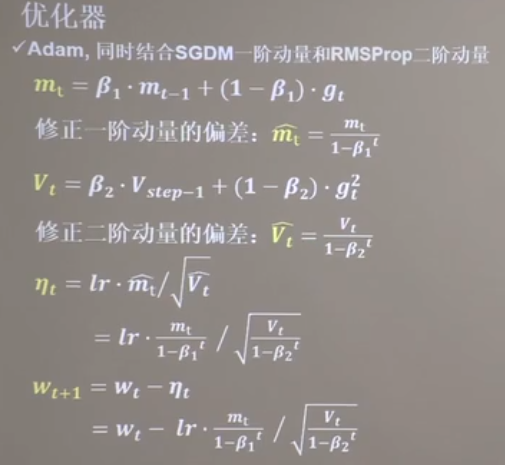 优化器
✓Adam, 同时结合SGDM一阶动量和RMSProp二阶动量
mₜ = β₁ · mₜ₋₁ + (1 − β₁) · gₜ
修正一阶动量的偏差：m̂ₜ = mₜ / (1−β₁ᵗ)
Vₜ = β₂ · V_{step−1} + (1 − β₂) · gₜ²
修正二阶动量的偏差：V̂ₜ = Vₜ / (1−β₂ᵗ)
ηₜ = lr · m̂ₜ / √V̂ₜ
= lr · mₜ / (1−β₁ᵗ) / √(Vₜ / (1−β₂ᵗ))
wₜ₊₁ = wₜ − ηₜ
= wₜ − lr · mₜ / (1−β₁ᵗ) / √(Vₜ / (1−β₂ᵗ))